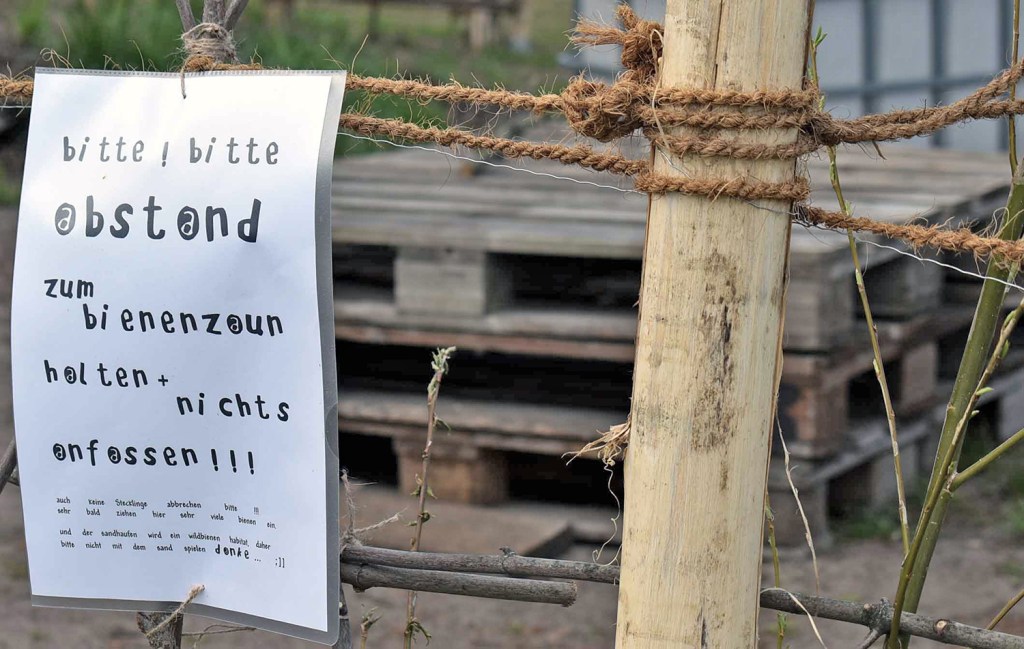 bitte ! bitte
abstand
zum
bienenzaun
halten +
nichts
anfassen !!!
auch keine Stecklinge abbrechen bitte !!!
sehr bald ziehen hier sehr viele bienen ein.
und der sandhaufen wird ein wildbienen habitat, daher
bitte nicht mit dem sand spielen danke ... ;))